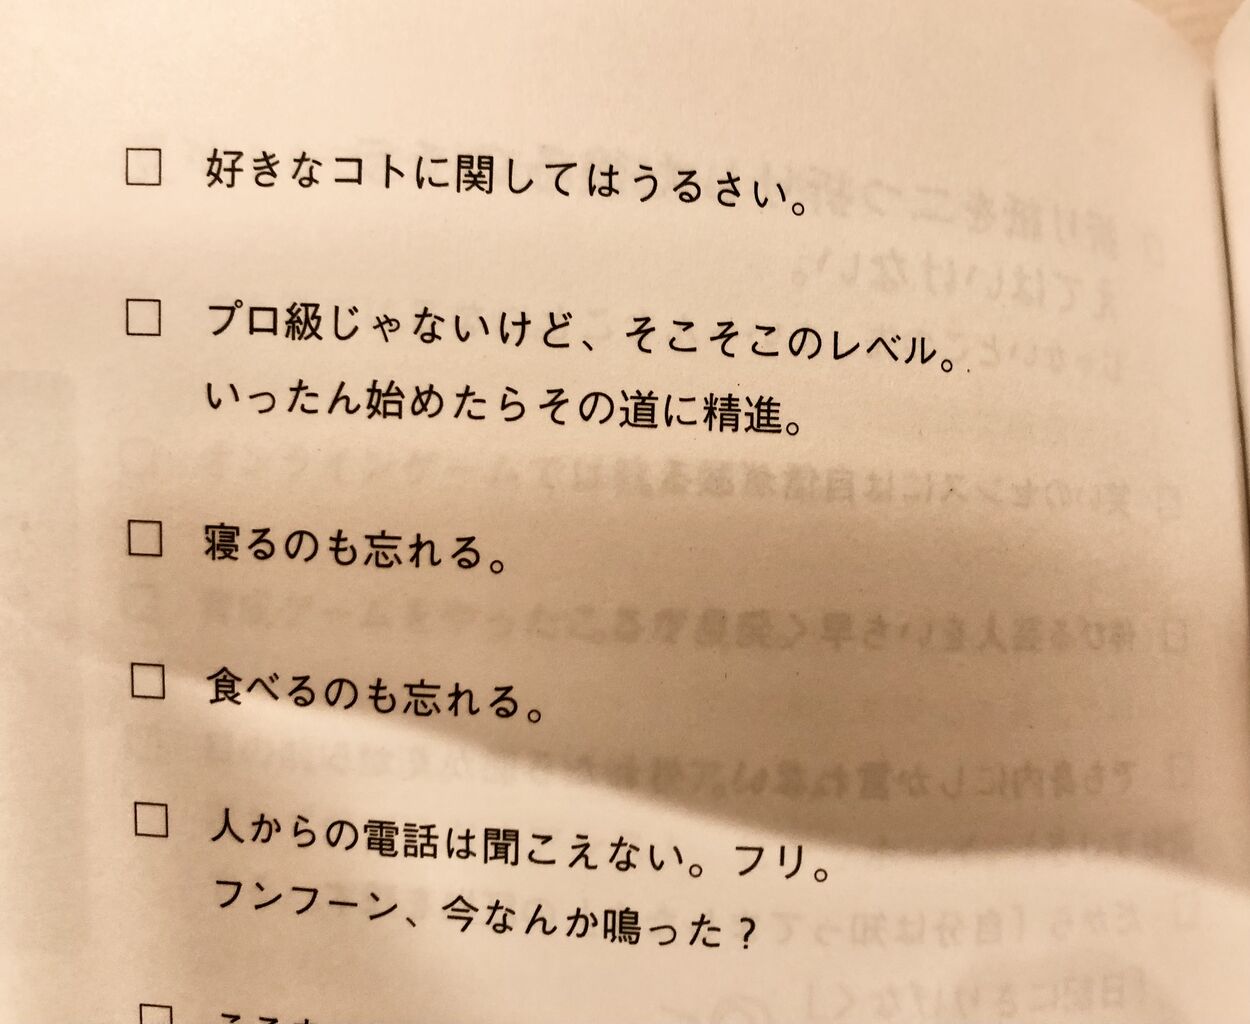 □ 好きなコトに関してはうるさい。
□ プロ級じゃないけど、そこそこのレベル。
いったん始めたらその道に精進。
□ 寝るのも忘れる。
□ 食べるのも忘れる。
□ 人からの電話は聞こえない。フリ。
フンフーン、今なんか鳴った？